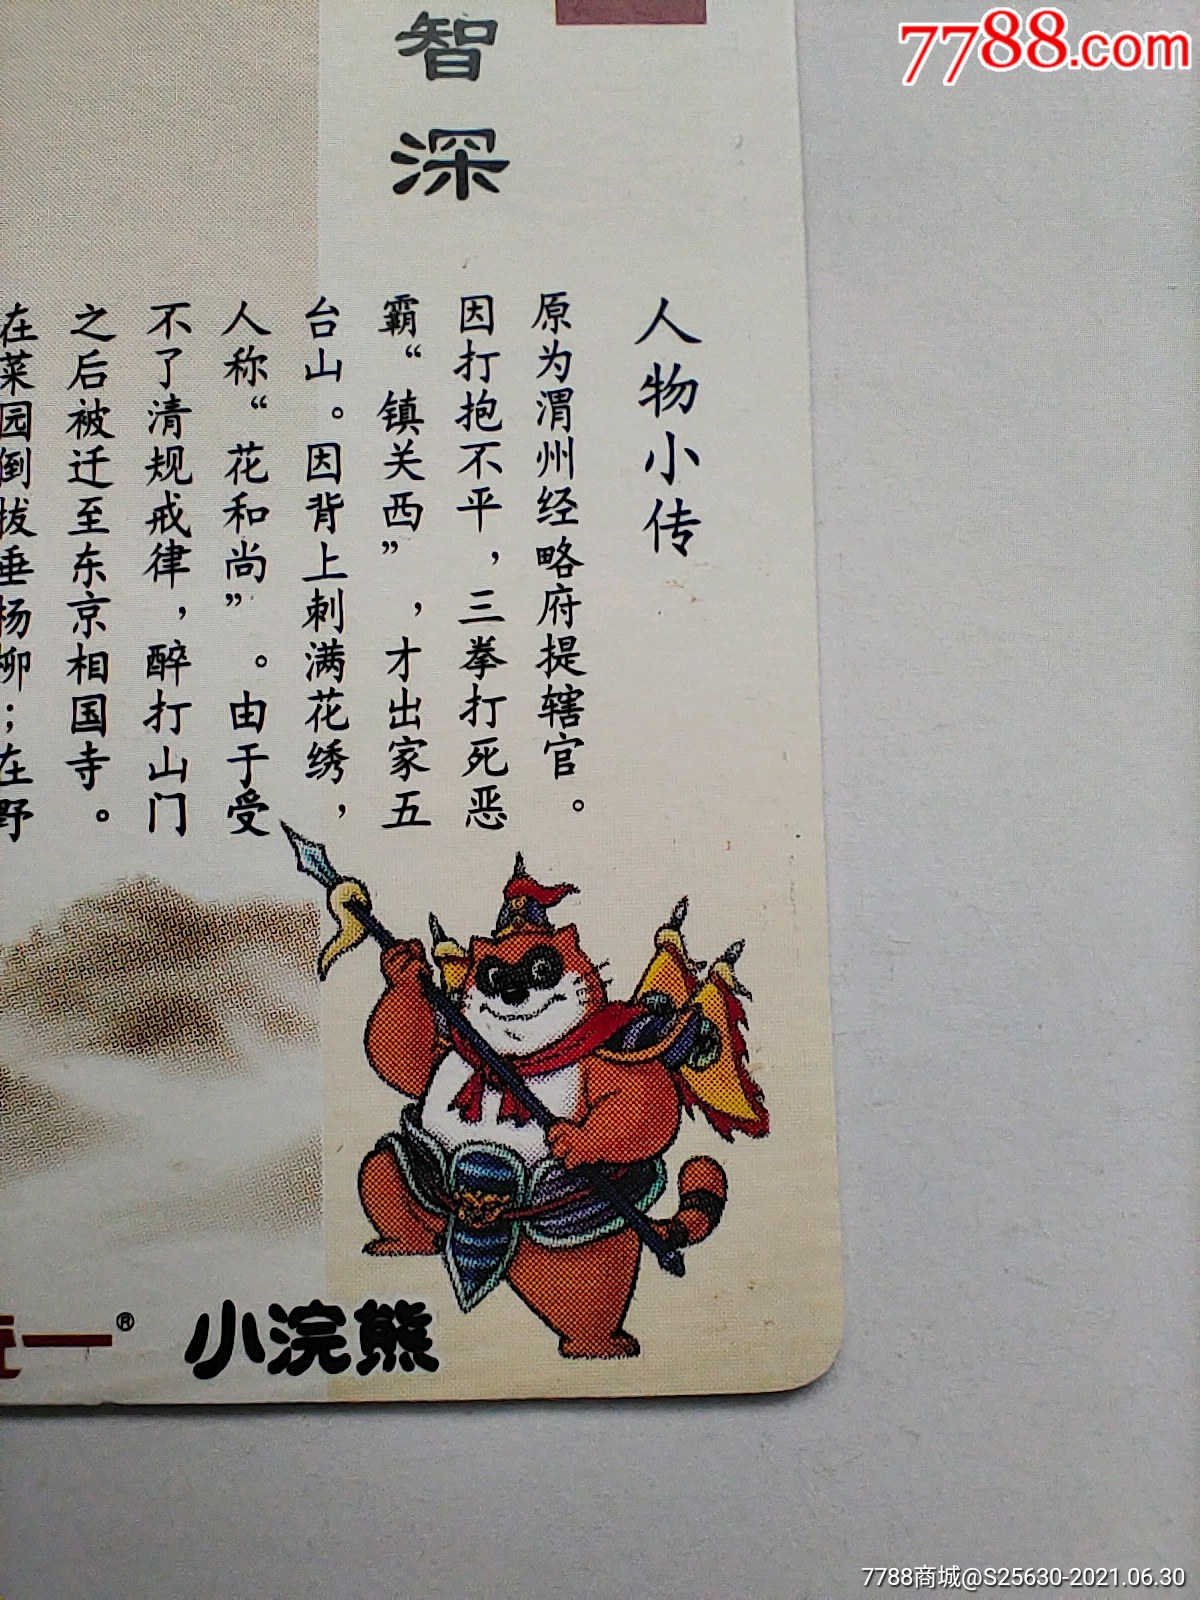 7788.com
智深
人物小传
原为渭州经略府提辖官。
因打抱不平，三拳打死恶
霸“镇关西”，才出家五
台山。因背上刺满花绣，
人称“花和尚”。由于受
不了清规戒律，醉打山门
之后被迁至东京相国寺。
在菜园倒拔垂杨柳；在野
统一® 小浣熊
7788商城@S25630-2021.06.30